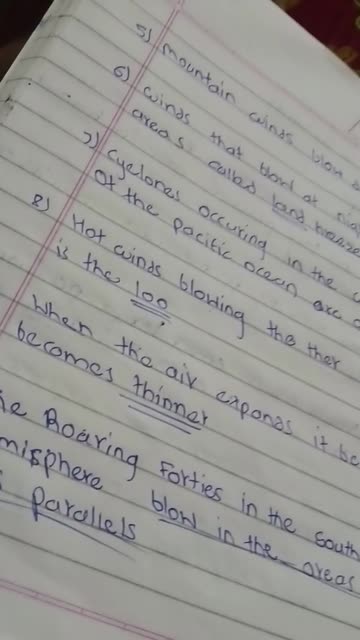 5) mountain winds blow
6) winds that blow at
areas called land breeze
7) Cyclones occuring in the
of the pacific ocean are
8) Hot winds blowing the ther
is the 100
When the air expands it be
becomes thinner
Roaring Forties in the south
misphere blow in the areas
parallels